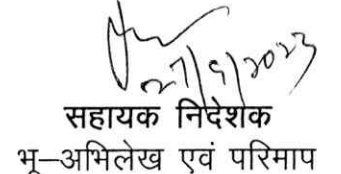 27/9/2023
सहायक निदेशक
भू–अभिलेख एवं परिमाप